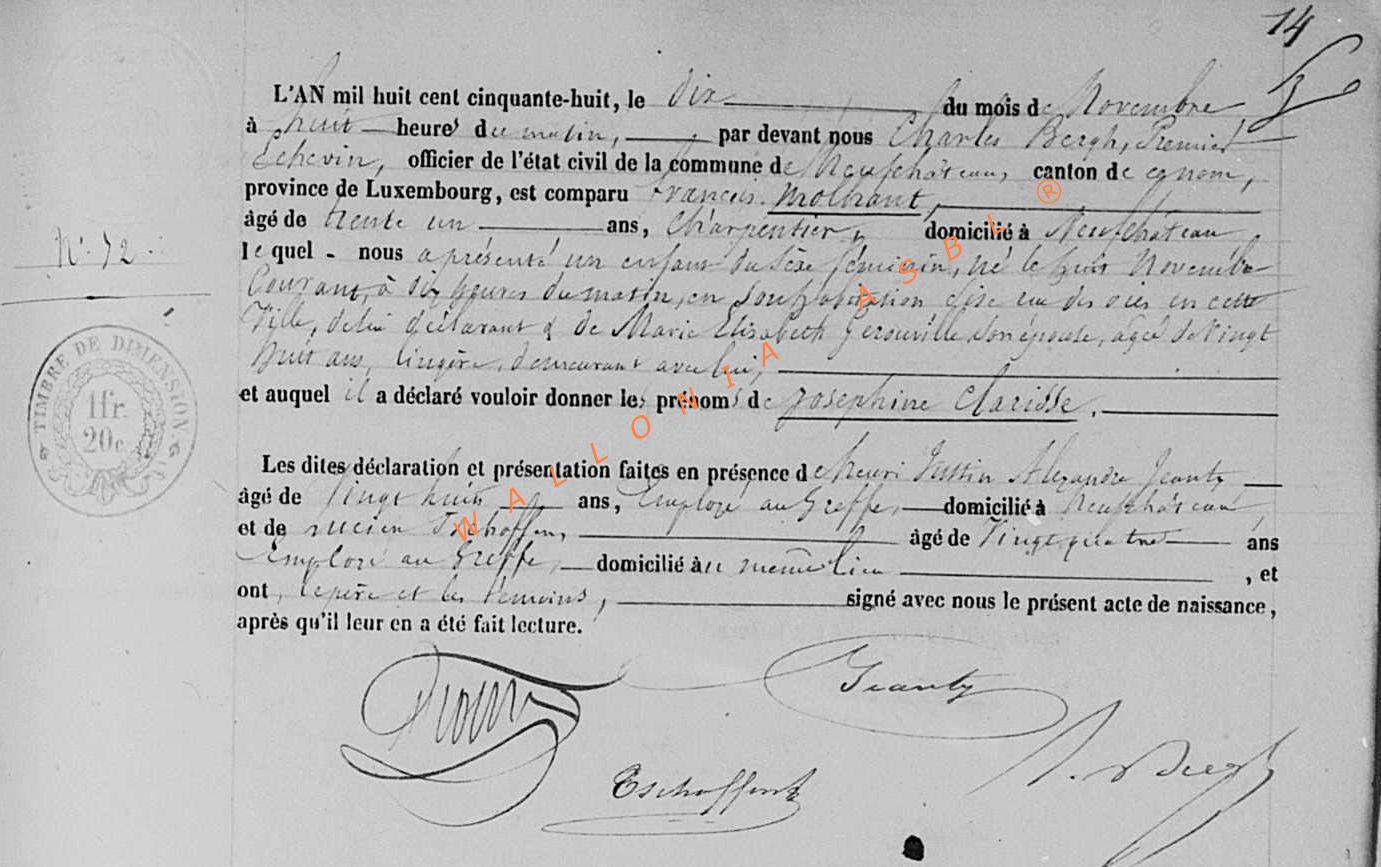 14
L'AN mil huit cent cinquante-huit, le Dix du mois de Novembre
à huit heures du matin, par devant nous Charles Bergh, Premier
Echevin, officier de l'état civil de la commune de Neufchâteau, canton de ce nom,
province de Luxembourg, est comparu François
âgé de trente un ans, Charpentier, domicilié à Neufchâteau,
lequel nous a présenté un enfant du sexe féminin, né le huit Novembre
Courant, à dix heures du matin, en son habitation sise rue des oies en cette
Ville, de lui déclarant & de Marie Elisabeth Gérouville, son épouse, agée de vingt
huit ans, lingère, demeurant avec lui,
et auquel il a déclaré vouloir donner les prénoms de Joséphine Clarisse.
Les dites déclaration et présentation faites en présence de Henri Justin Alexandre Jeanty
âgé de Vingt huit ans, Employé au Greffe, domicilié à Neufchâteau,
et de Lucien Tschoffen, âgé de Vingt quatre ans
Employé au Greffe, domicilié au même lieu, et
ont, le père et les témoins, signé avec nous le présent acte de naissance,
après qu'il leur en a été fait lecture.
Jeanty
Tschoffen
N° 72
TIMBRE DE DIMENSION
1 fr.
20 c.
WALLONIA ASBL ®